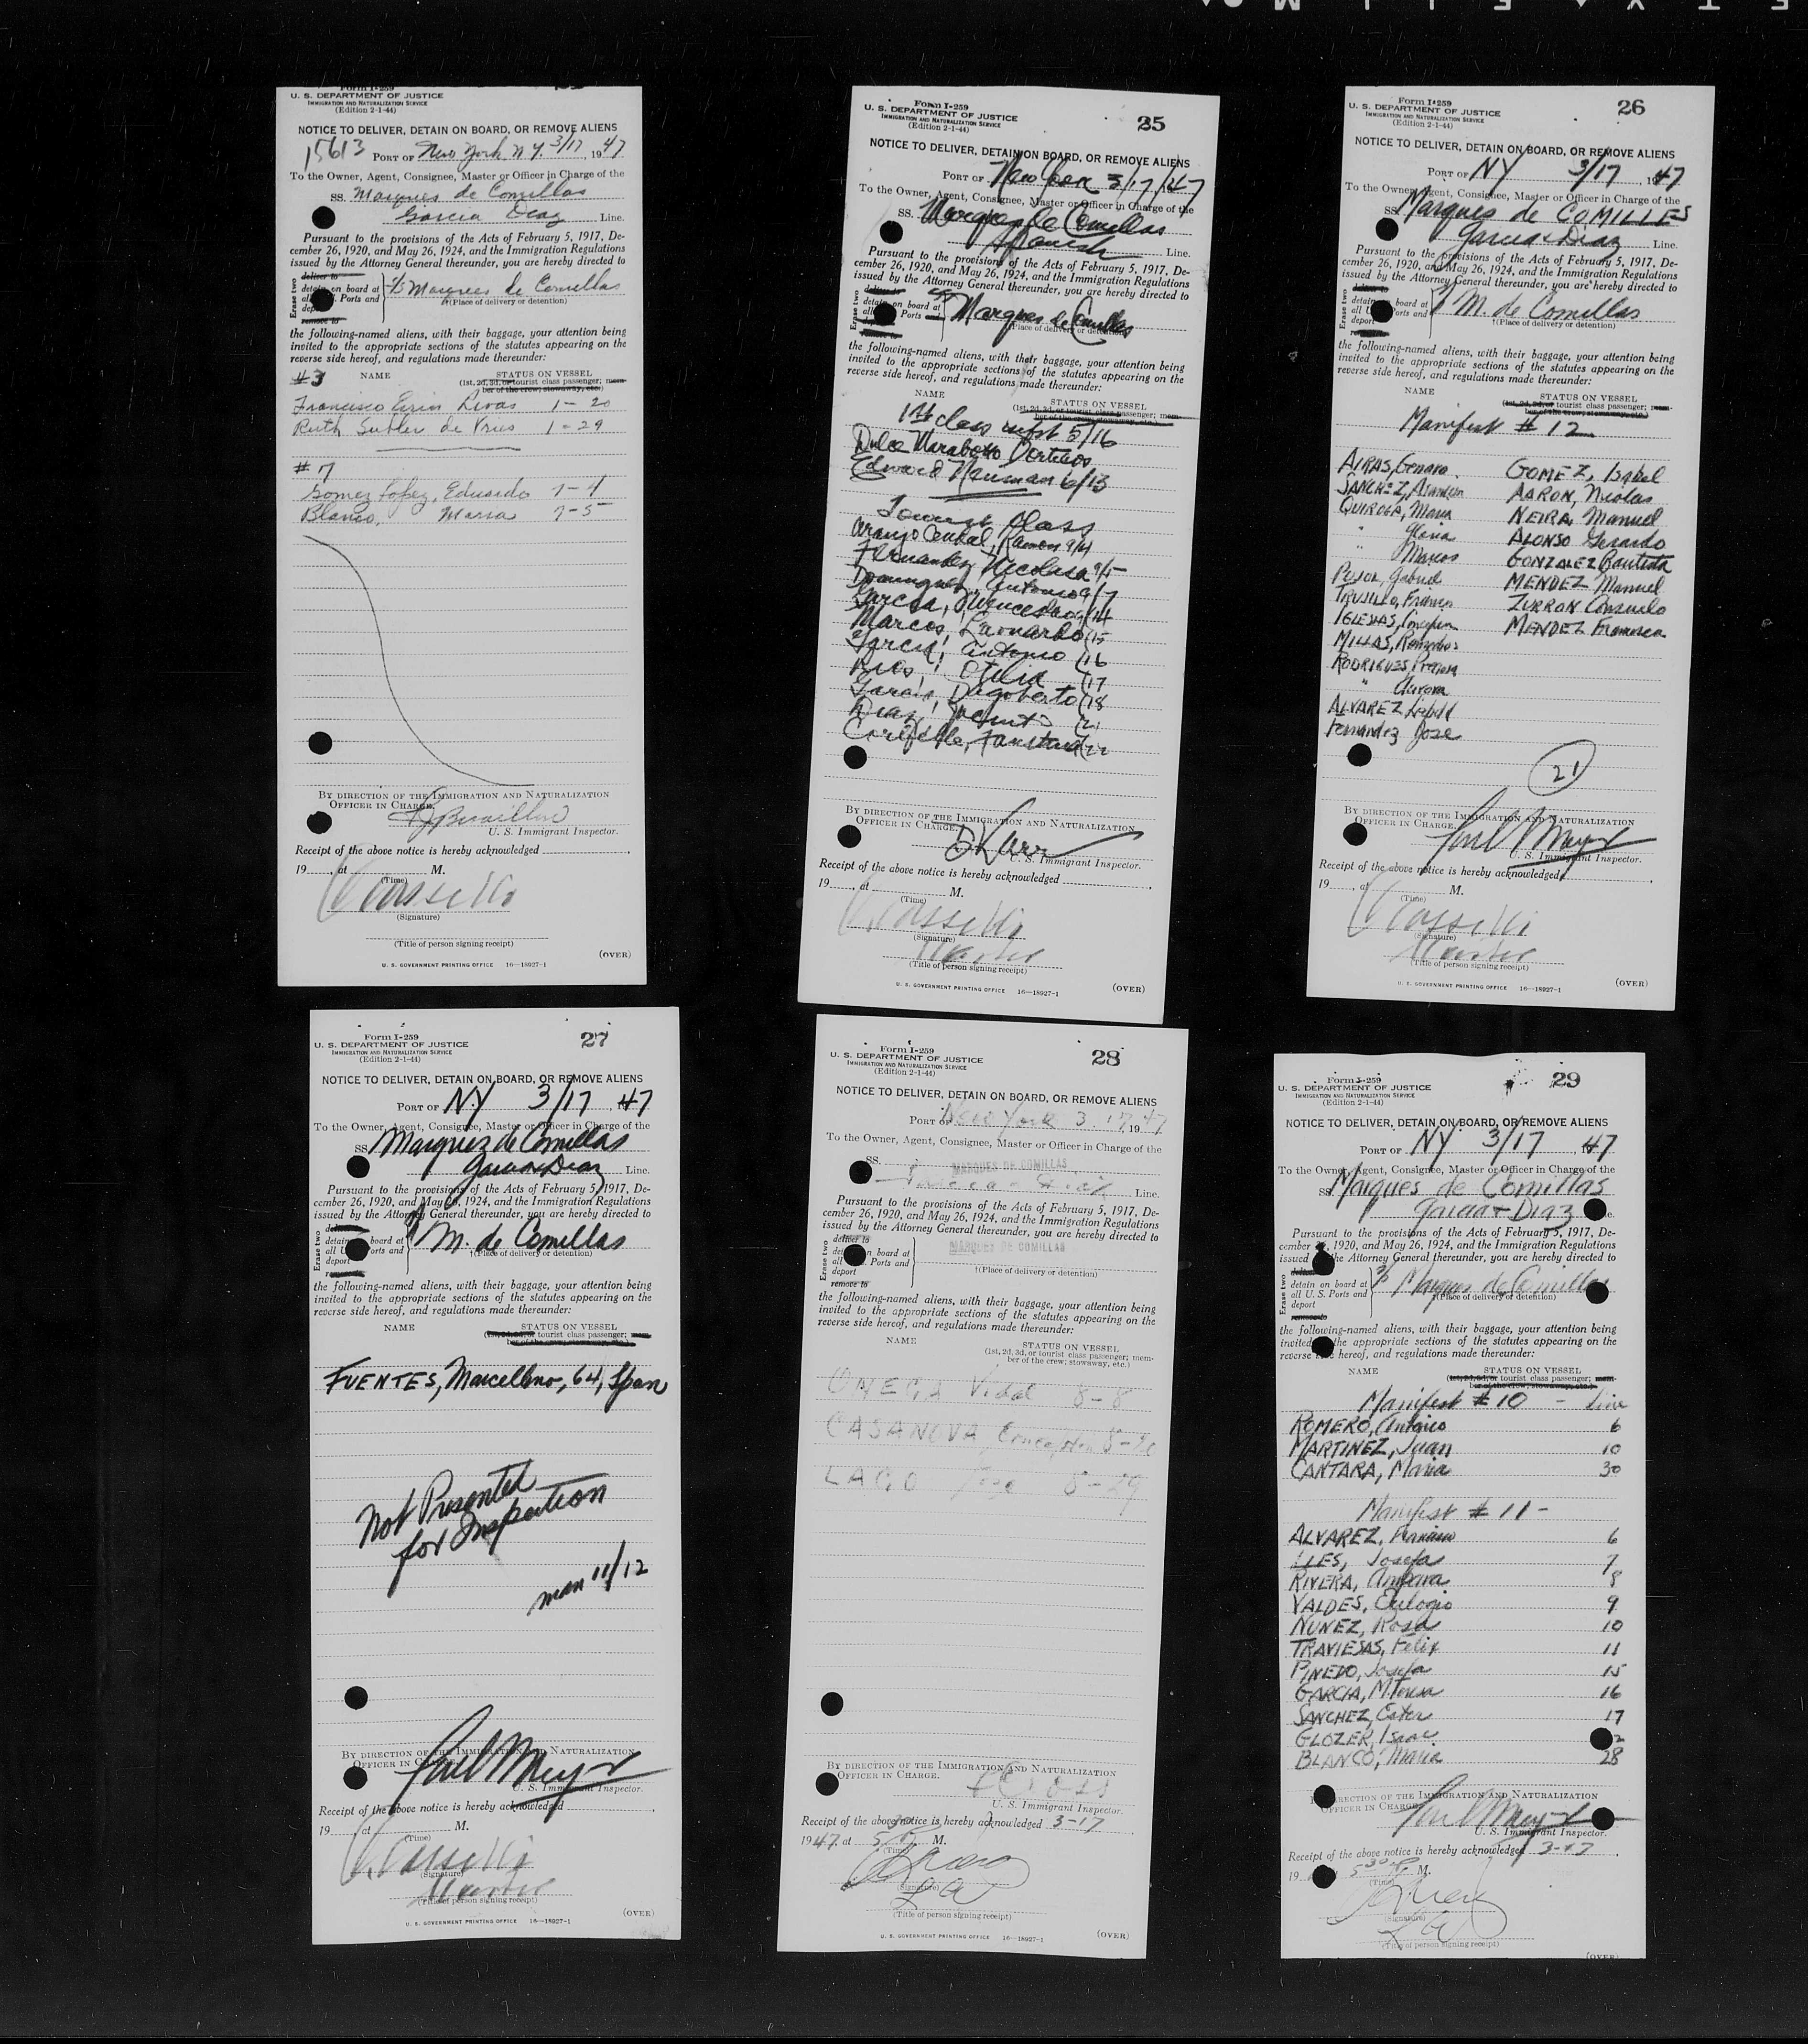 Form I-259
U. S. DEPARTMENT OF JUSTICE
IMMIGRATION AND NATURALIZATION SERVICE
(Edition 2-1-44)
NOTICE TO DELIVER, DETAIN ON BOARD, OR REMOVE ALIENS
15613 PORT OF New York NY. 3/17, 1947
To the Owner, Agent, Consignee, Master or Officer in Charge of the
SS. Marques de Comillas
Garcia Diaz Line.
Pursuant to the provisions of the Acts of February 5, 1917, De-
cember 26, 1920, and May 26, 1924, and the Immigration Regulations
issued by the Attorney General thereunder, you are hereby directed to
Erase two
deliver to
detain on board at
all Ports and
deport
remove to
Marques de Comillas
(Place of delivery or detention)
the following-named aliens, with their baggage, your attention being
invited to the appropriate sections of the statutes appearing on the
reverse side hereof, and regulations made thereunder:
#3 NAME STATUS ON VESSEL
(1st, 2d, 3d, or tourist class passenger; mem-
ber of the crew; stowaway, etc.)
Francisco Rivas 1-20
Ruth de Vries 1-29
#7
Gomez Lopez, Eduardo 7-4
Blanco, Maria 7-5
BY DIRECTION OF THE IMMIGRATION AND NATURALIZATION
OFFICER IN CHARGE.
U. S. Immigrant Inspector.
Receipt of the above notice is hereby acknowledged
19 , at M.
(Time)
(Signature)
(Title of person signing receipt)
(OVER)
U. S. GOVERNMENT PRINTING OFFICE 16—18927-1
Form I-259 25
U. S. DEPARTMENT OF JUSTICE
IMMIGRATION AND NATURALIZATION SERVICE
(Edition 2-1-44)
NOTICE TO DELIVER, DETAIN ON BOARD, OR REMOVE ALIENS
PORT OF New York 3/17/47
To the Owner, Agent, Consignee, Master or Officer in Charge of the
SS. Marques de Comillas
Spanish Line.
Pursuant to the provisions of the Acts of February 5, 1917, De-
cember 26, 1920, and May 26, 1924, and the Immigration Regulations
issued by the Attorney General thereunder, you are hereby directed to
Erase two
deliver to
detain on board at
all Ports and
Marques de Comillas
(Place of delivery or detention)
the following-named aliens, with their baggage, your attention being
invited to the appropriate sections of the statutes appearing on the
reverse side hereof, and regulations made thereunder:
NAME STATUS ON VESSEL
(1st, 2d, 3d, or tourist class passenger; mem-
ber of the crew; stowaway, etc.)
1st class mfst 5/16
Dulce
Edward Neuman 6/13
Tourist Class
Araujo Ramon 9/4
Fernandez, Nicolasa 9/5
Dominguez, Antonio 9/7
Garcia, 9/14
Marcos, Leonardo /15
Garcia, Antonio /16
Rios, Otilia /17
Garcia, Dagoberto /18
Diaz, Jacinto /21
/22
BY DIRECTION OF THE IMMIGRATION AND NATURALIZATION
OFFICER IN CHARGE.
D Karr
U. S. Immigrant Inspector.
Receipt of the above notice is hereby acknowledged
19 , at M.
(Time)
(Signature)
Master
(Title of person signing receipt)
U. S. GOVERNMENT PRINTING OFFICE 16—18927-1 (OVER)
Form I-259 26
U. S. DEPARTMENT OF JUSTICE
IMMIGRATION AND NATURALIZATION SERVICE
(Edition 2-1-44)
NOTICE TO DELIVER, DETAIN ON BOARD, OR REMOVE ALIENS
PORT OF NY 3/17, 1947
To the Owner, Agent, Consignee, Master or Officer in Charge of the
SS Marques de COMILLES
Garcia & Diaz Line.
Pursuant to the provisions of the Acts of February 5, 1917, De-
cember 26, 1920, and May 26, 1924, and the Immigration Regulations
issued by the Attorney General thereunder, you are hereby directed to
Erase two
detain board at
all U Ports and
deport
M. de Comillas
†(Place of delivery or detention)
the following-named aliens, with their baggage, your attention being
invited to the appropriate sections of the statutes appearing on the
reverse side hereof, and regulations made thereunder:
NAME STATUS ON VESSEL
(1st, 2d, 3d, or tourist class passenger; mem-
ber of the crew; stowaway, etc.)
Manifest # 12
AIRAS, Genara GOMEZ, Isabel
SANCHEZ, AARON, Nicolas
QUIROGA, Maria NEIRA, Manuel
" Gloria ALONSO Gerardo
" Marcos GONZALEZ Bautista
PUJOL, Gabriel MENDEZ Manuel
TRUJILLO, ZURRON Consuelo
IGLESIAS, MENDEZ Francisca
MILLAS,
RODRIGUES,
" Aurora
ALVAREZ
Fernandez Jose
21
BY DIRECTION OF THE IMMIGRATION AND NATURALIZATION
OFFICER IN CHARGE.
U. S. Immigrant Inspector.
Receipt of the above notice is hereby acknowledged
19 , at M.
(Time)
(Signature)
Master
(Title of person signing receipt)
U. S. GOVERNMENT PRINTING OFFICE 16—18927-1 (OVER)
Form I-259 27
U. S. DEPARTMENT OF JUSTICE
IMMIGRATION AND NATURALIZATION SERVICE
(Edition 2-1-44)
NOTICE TO DELIVER, DETAIN ON BOARD, OR REMOVE ALIENS
PORT OF NY 3/17, 47
To the Owner, Agent, Consignee, Master or Officer in Charge of the
SS Marquez de Comillas
Garcia & Diaz Line.
Pursuant to the provisions of the Acts of February 5, 1917, De-
cember 26, 1920, and May 26, 1924, and the Immigration Regulations
issued by the Attorney General thereunder, you are hereby directed to
Erase two
deliver to
detain board at
all U Ports and
deport
M. de Comillas
†(Place of delivery or detention)
the following-named aliens, with their baggage, your attention being
invited to the appropriate sections of the statutes appearing on the
reverse side hereof, and regulations made thereunder:
NAME STATUS ON VESSEL
(1st, 2d, 3d, or tourist class passenger;
ber of the crew; stowaway, etc.)
FUENTES, Marcellino, 64, Span
Not Presented
for Inspection
man 11/12
BY DIRECTION OF THE IMMIGRATION AND NATURALIZATION
OFFICER IN CHARGE.
U. S. Immigrant Inspector.
Receipt of the above notice is hereby acknowledged
19 , at M.
(Time)
(Signature)
Master
(Title of person signing receipt)
(OVER)
U. S. GOVERNMENT PRINTING OFFICE 16—18927-1
Form I-259 28
U. S. DEPARTMENT OF JUSTICE
IMMIGRATION AND NATURALIZATION SERVICE
(Edition 2-1-44)
NOTICE TO DELIVER, DETAIN ON BOARD, OR REMOVE ALIENS
PORT OF New York 3 17, 1947
To the Owner, Agent, Consignee, Master or Officer in Charge of the
SS. MARQUES DE COMILLAS
Line.
Pursuant to the provisions of the Acts of February 5, 1917, De-
cember 26, 1920, and May 26, 1924, and the Immigration Regulations
issued by the Attorney General thereunder, you are hereby directed to
Erase two
deliver to
on board at
all Ports and
deport
remove to
MARQUES DE COMILLAS
†(Place of delivery or detention)
the following-named aliens, with their baggage, your attention being
invited to the appropriate sections of the statutes appearing on the
reverse side hereof, and regulations made thereunder:
NAME STATUS ON VESSEL
(1st, 2d, 3d, or tourist class passenger; mem-
ber of the crew; stowaway, etc.)
ONEGA Vidal 8-8
CASANOVA, Concepcion
LAGO Jose 8-29
BY DIRECTION OF THE IMMIGRATION AND NATURALIZATION
OFFICER IN CHARGE.
U. S. Immigrant Inspector.
Receipt of the above notice is hereby acknowledged 3-17
1947, at 5 M.
(Time)
(Signature)
(Title of person signing receipt)
U. S. GOVERNMENT PRINTING OFFICE 16—18927-1 (OVER)
Form I-259 29
U. S. DEPARTMENT OF JUSTICE
IMMIGRATION AND NATURALIZATION SERVICE
(Edition 2-1-44)
NOTICE TO DELIVER, DETAIN ON BOARD, OR REMOVE ALIENS
PORT OF NY 3/17 , 47
To the Owner, Agent, Consignee, Master or Officer in Charge of the
SS Marques de Comillas
Garcia & Diaz
Pursuant to the provisions of the Acts of February 5, 1917, De-
cember , 1920, and May 26, 1924, and the Immigration Regulations
issued the Attorney General thereunder, you are hereby directed to
Erase two
detain on board at
all U.S. Ports and
deport
remove to
Marques de Comillas
†(Place of delivery or detention)
the following-named aliens, with their baggage, your attention being
invited the appropriate sections of the statutes appearing on the
reverse hereof, and regulations made thereunder:
NAME STATUS ON VESSEL
(1st, 2d, 3d, or tourist class passenger; mem-
ber of the crew; stowaway, etc.)
Manifest #10 - line
ROMERO, Antonio 6
MARTINEZ, Juan 10
CANTARA, Maria 30
Manifest # 11 -
ALVAREZ, 6
LLES, Josefa 7
RIVERA, Ampara 8
VALDES, Eulogio 9
NUNEZ, Rosa 10
TRAVIESAS, Felix 11
PINEDO, Josefa 15
GARCIA, M. Teresa 16
SANCHEZ, Ester 17
GLOZER, Isaac 2
BLANCO, Maria 28
DIRECTION OF THE IMMIGRATION AND NATURALIZATION
OFFICER IN CHARGE.
U. S. Immigrant Inspector.
Receipt of the above notice is hereby acknowledged 3-17
19 530 P. M.
(Time)
(Signature)
(Title of person signing receipt)
(OVER)